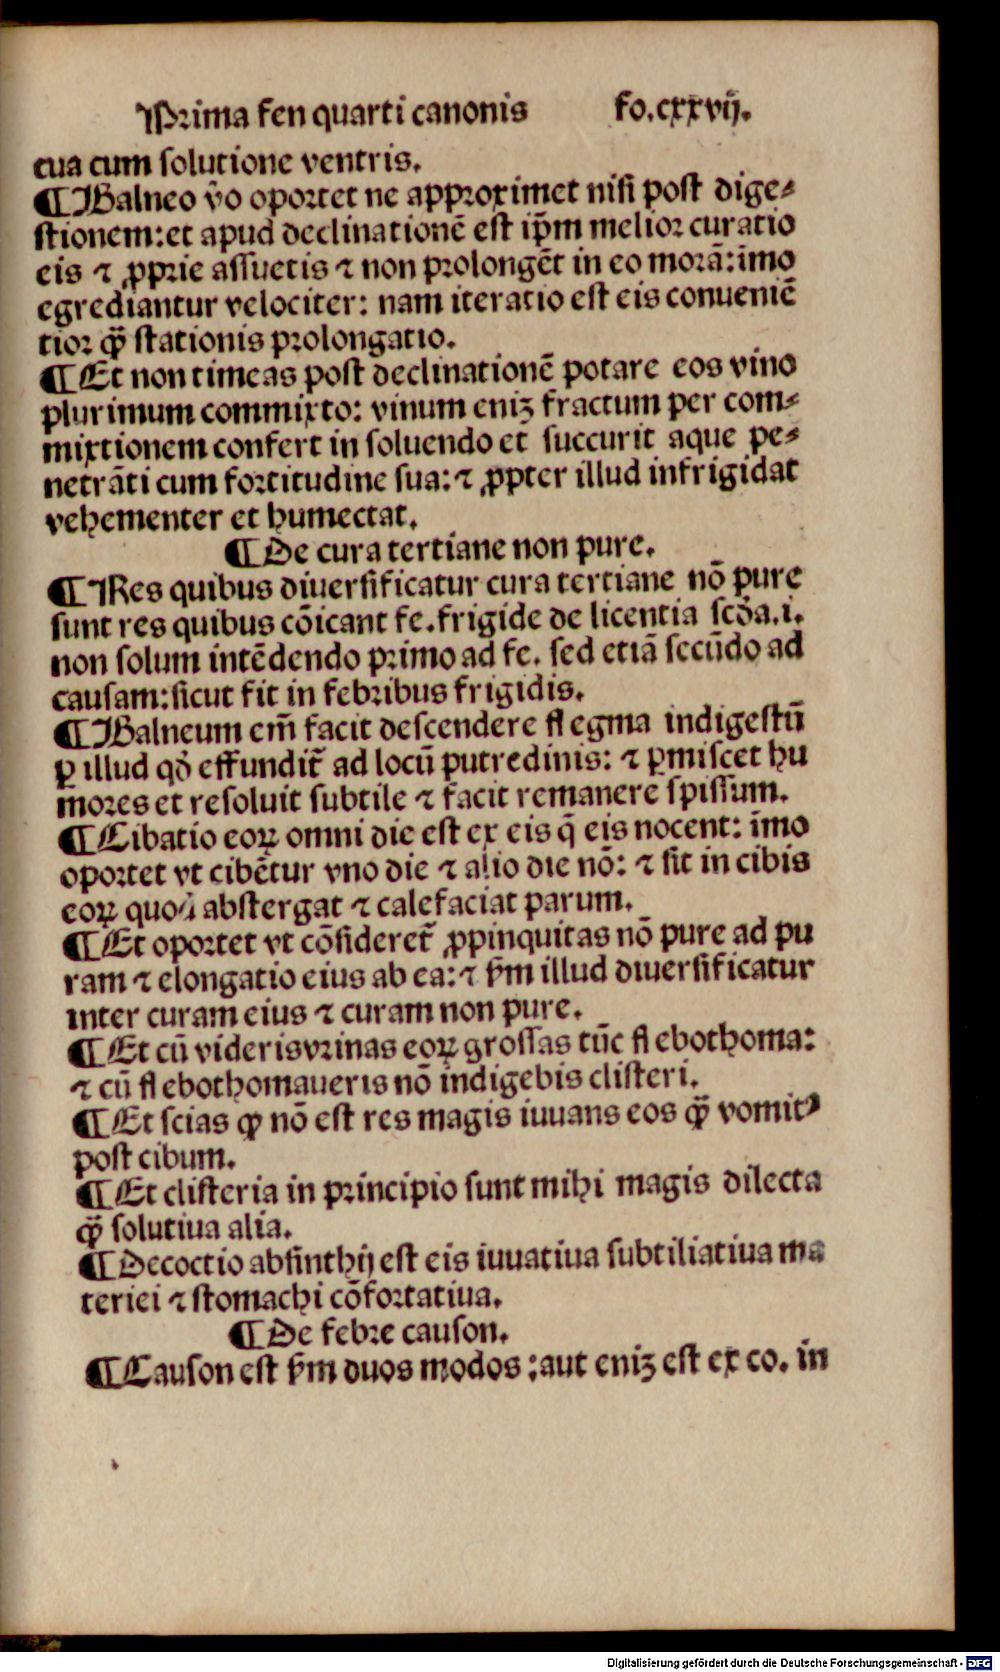 Prima fen quarti canonis fo.cxxvij.
cua cum solutione ventris.
¶ Balneo v̄o oportet ne approximet nisi post dige⸗
stionem: et apud declinationē est ip̄m melior curatio
eis ⁊ ꝓprie assuetis ⁊ non prolongēt in eo morā: imo
egrediantur velociter: nam iteratio est eis conueniē
tior qꝫ̃ stationis prolongatio.
¶ Et non timeas post declinationē potare eos vino
plurimum commixto: vinum eniꝫ fractum per com⸗
mixtionem confert in soluendo et succurit aque pe⸗
netrāti cum fortitudine sua: ⁊ ꝓpter illud infrigidat
vehementer et humectat.
¶ De cura tertiane non pure.
¶ Res quibus diuersificatur cura tertiane nō pure
sunt res quibus cōicant fe. frigide de licentia scd̄a.i.
non solum intēdendo primo ad fe. sed etiā secūdo ad
causam: sicut fit in febribus frigidis.
¶ Balneum em̄ facit descendere flegma indigestū
ꝑ illud qd̄ effundit̄ ad locū putredinis: ⁊ ꝑmiscet hu
mores et resoluit subtile ⁊ facit remanere spissum.
¶ Cibatio eoꝝ omni die est ex eis q̄ eis nocent: īmo
oportet vt cibētur vno die ⁊ alio die nō: ⁊ sit in cibis
eoꝝ quod abstergat ⁊ calefaciat parum.
¶ Et oportet vt cōsideret̄ ꝓpinquitas nō pure ad pu
ram ⁊ elongatio eius ab ea: ⁊ ẜm illud diuersificatur
inter curam eius ⁊ curam non pure.
¶ Et cū videris vrinas eoꝝ grossas tūc flebothoma:
⁊ cū flebothomaueris nō indigebis clisteri.
¶ Et scias ꝙ nō est res magis iuuans eos qꝫ̃ vomitꝰ
post cibum.
¶ Et clisteria in principio sunt mihi magis dilecta
qꝫ̃ solutiua alia.
¶ Decoctio absinthij est eis iuuatiua subtiliatiua ma
teriei ⁊ stomachi cōfortatiua.
¶ De febre causon.
¶ Causon est ẜm duos modos: aut eniꝫ est ex co. in
Digitalisierung gefördert durch die Deutsche Forschungsgemeinschaft - DFG